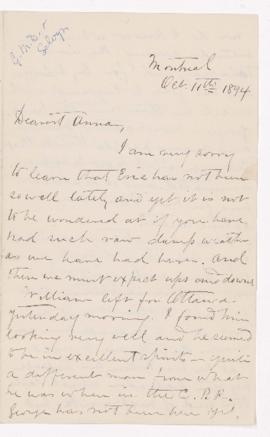 G. M. D. to
Selwyn
Montreal
Oct. 11th 1894
Dearest Anna,
I am very sorry
to learn that Eric has not been
so well lately and yet it is not
to be wondered at if you have
had such raw damp weather
as we have had here. And
then we must expect ups and downs
William left for Ottawa
yesterday morning. I found him
looking very well and he seemed
to be in excellent spirits — quite
a different man from what
he was when in the C. P. R.
George has not been here yet.